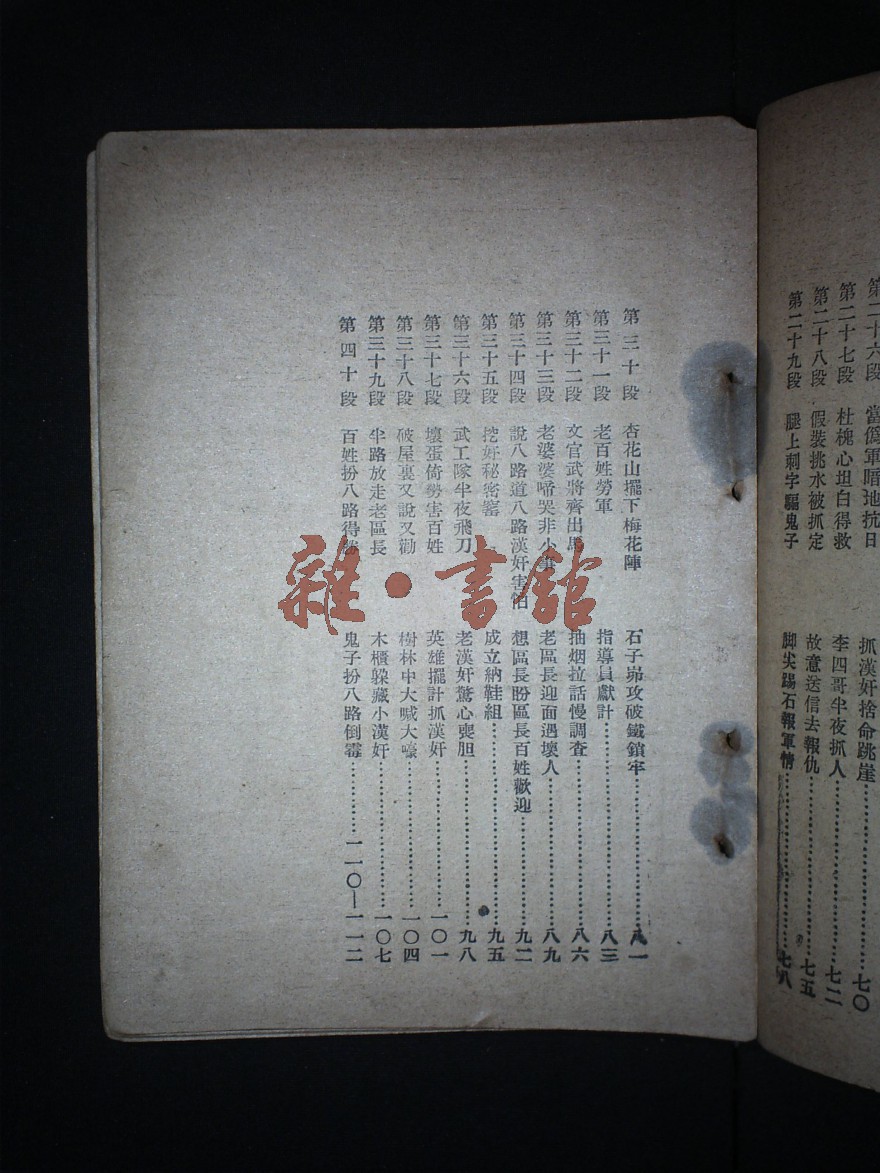 第二十六段 當僞軍暗地抗日 抓漢奸捨命跳崖………七〇
第二十七段 杜槐心坦白得救 李四哥半夜抓人………七二
第二十八段 假裝挑水被抓定 故意送信去報仇………七五
第二十九段 腿上刺字騙鬼子 脚尖踢石報軍情………七八
第三十段 杏花山擺下梅花陣 石子峁攻破鐵鎖牢………八一
第三十一段 老百姓勞軍 指導員獻計………八三
第三十二段 文官武將齊出馬 抽烟拉話慢調查………八六
第三十三段 老婆婆啼哭非小事 老區長迎面遇壞人………八九
第三十四段 說八路道八路漢奸害怕 想區長盼區長百姓歡迎………九二
第三十五段 挖好秘密窰 成立納鞋組………九五
第三十六段 武工隊半夜飛刀 老漢奸驚心喪胆………九八
第三十七段 壞蛋倚勢害百姓 英雄擺計抓漢奸………一〇一
第三十八段 破屋裏又說又勸 樹林中大喊大嚎………一〇四
第三十九段 半路放走老區長 木櫃躲藏小漢奸………一〇七
第四十段 百姓扮八路得勝 鬼子扮八路倒霉………一一〇—一一二
雜·書館